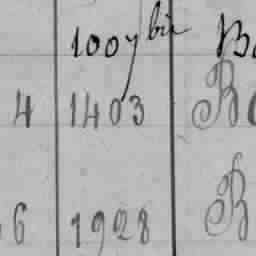 1007 bis B
4 1403 B
6 1928 B